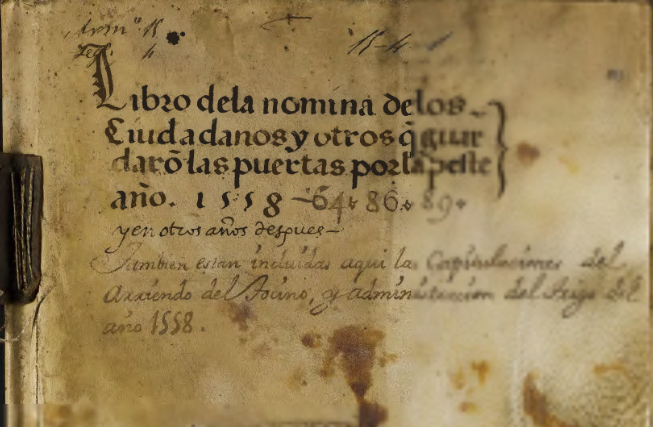 Arm.º 15
Leg. 4
15-4
Libro dela nomina delos
Ciudadanos y otros q̃ guar
darõ las puertas por la peste
año. 1558 - 64. 86. 89.
y en otros años despues
Tambien estan incluidas aqui las Capitulaciones del
Arriendo del Tocino, y administracion del trigo del
año 1558.